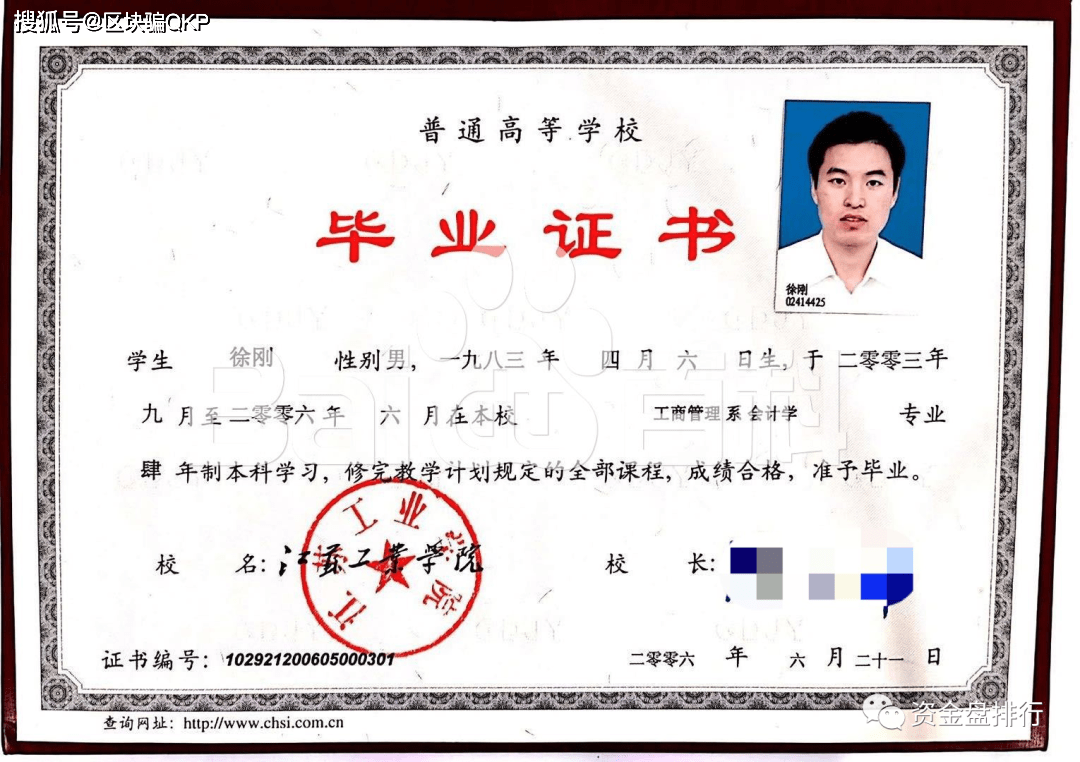 搜狐号@区块骗QKP
普通高等学校
毕业证书
徐刚
02414425
学生 徐刚 性别男，一九八三年 四月六 日生，于二零零三年
九月至二零零六年 六月在本校 工商管理系会计学 专业
肆年制本科学习，修完教学计划规定的全部课程，成绩合格，准予毕业。
Baidu百科
江苏工业学院
校 名：江苏工业学院 校 长：
证书编号：102921200605000301 二零零六 年 六 月二十一 日
查询网址：http://www.chsi.com.cn
资金盘排行